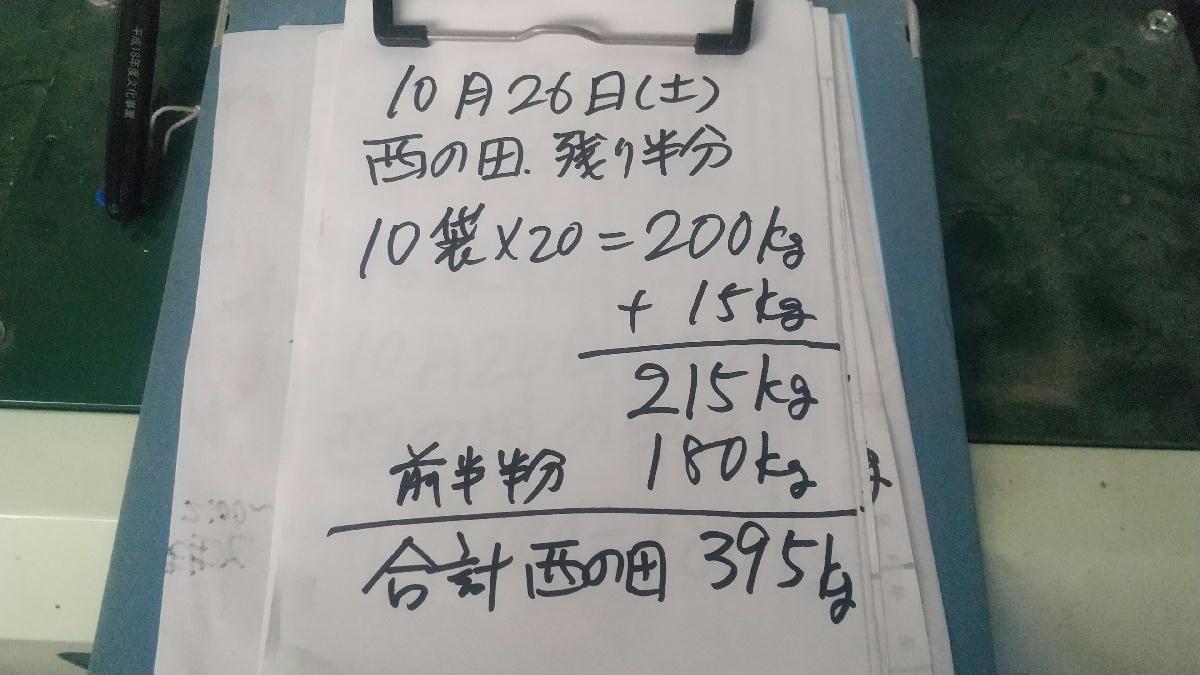 平成18年度文化事業
10月26日(土)
西の田.残り半分
10袋×20=200kg
+ 15kg
215kg
前半半分 180kg
合計 西の田 395kg